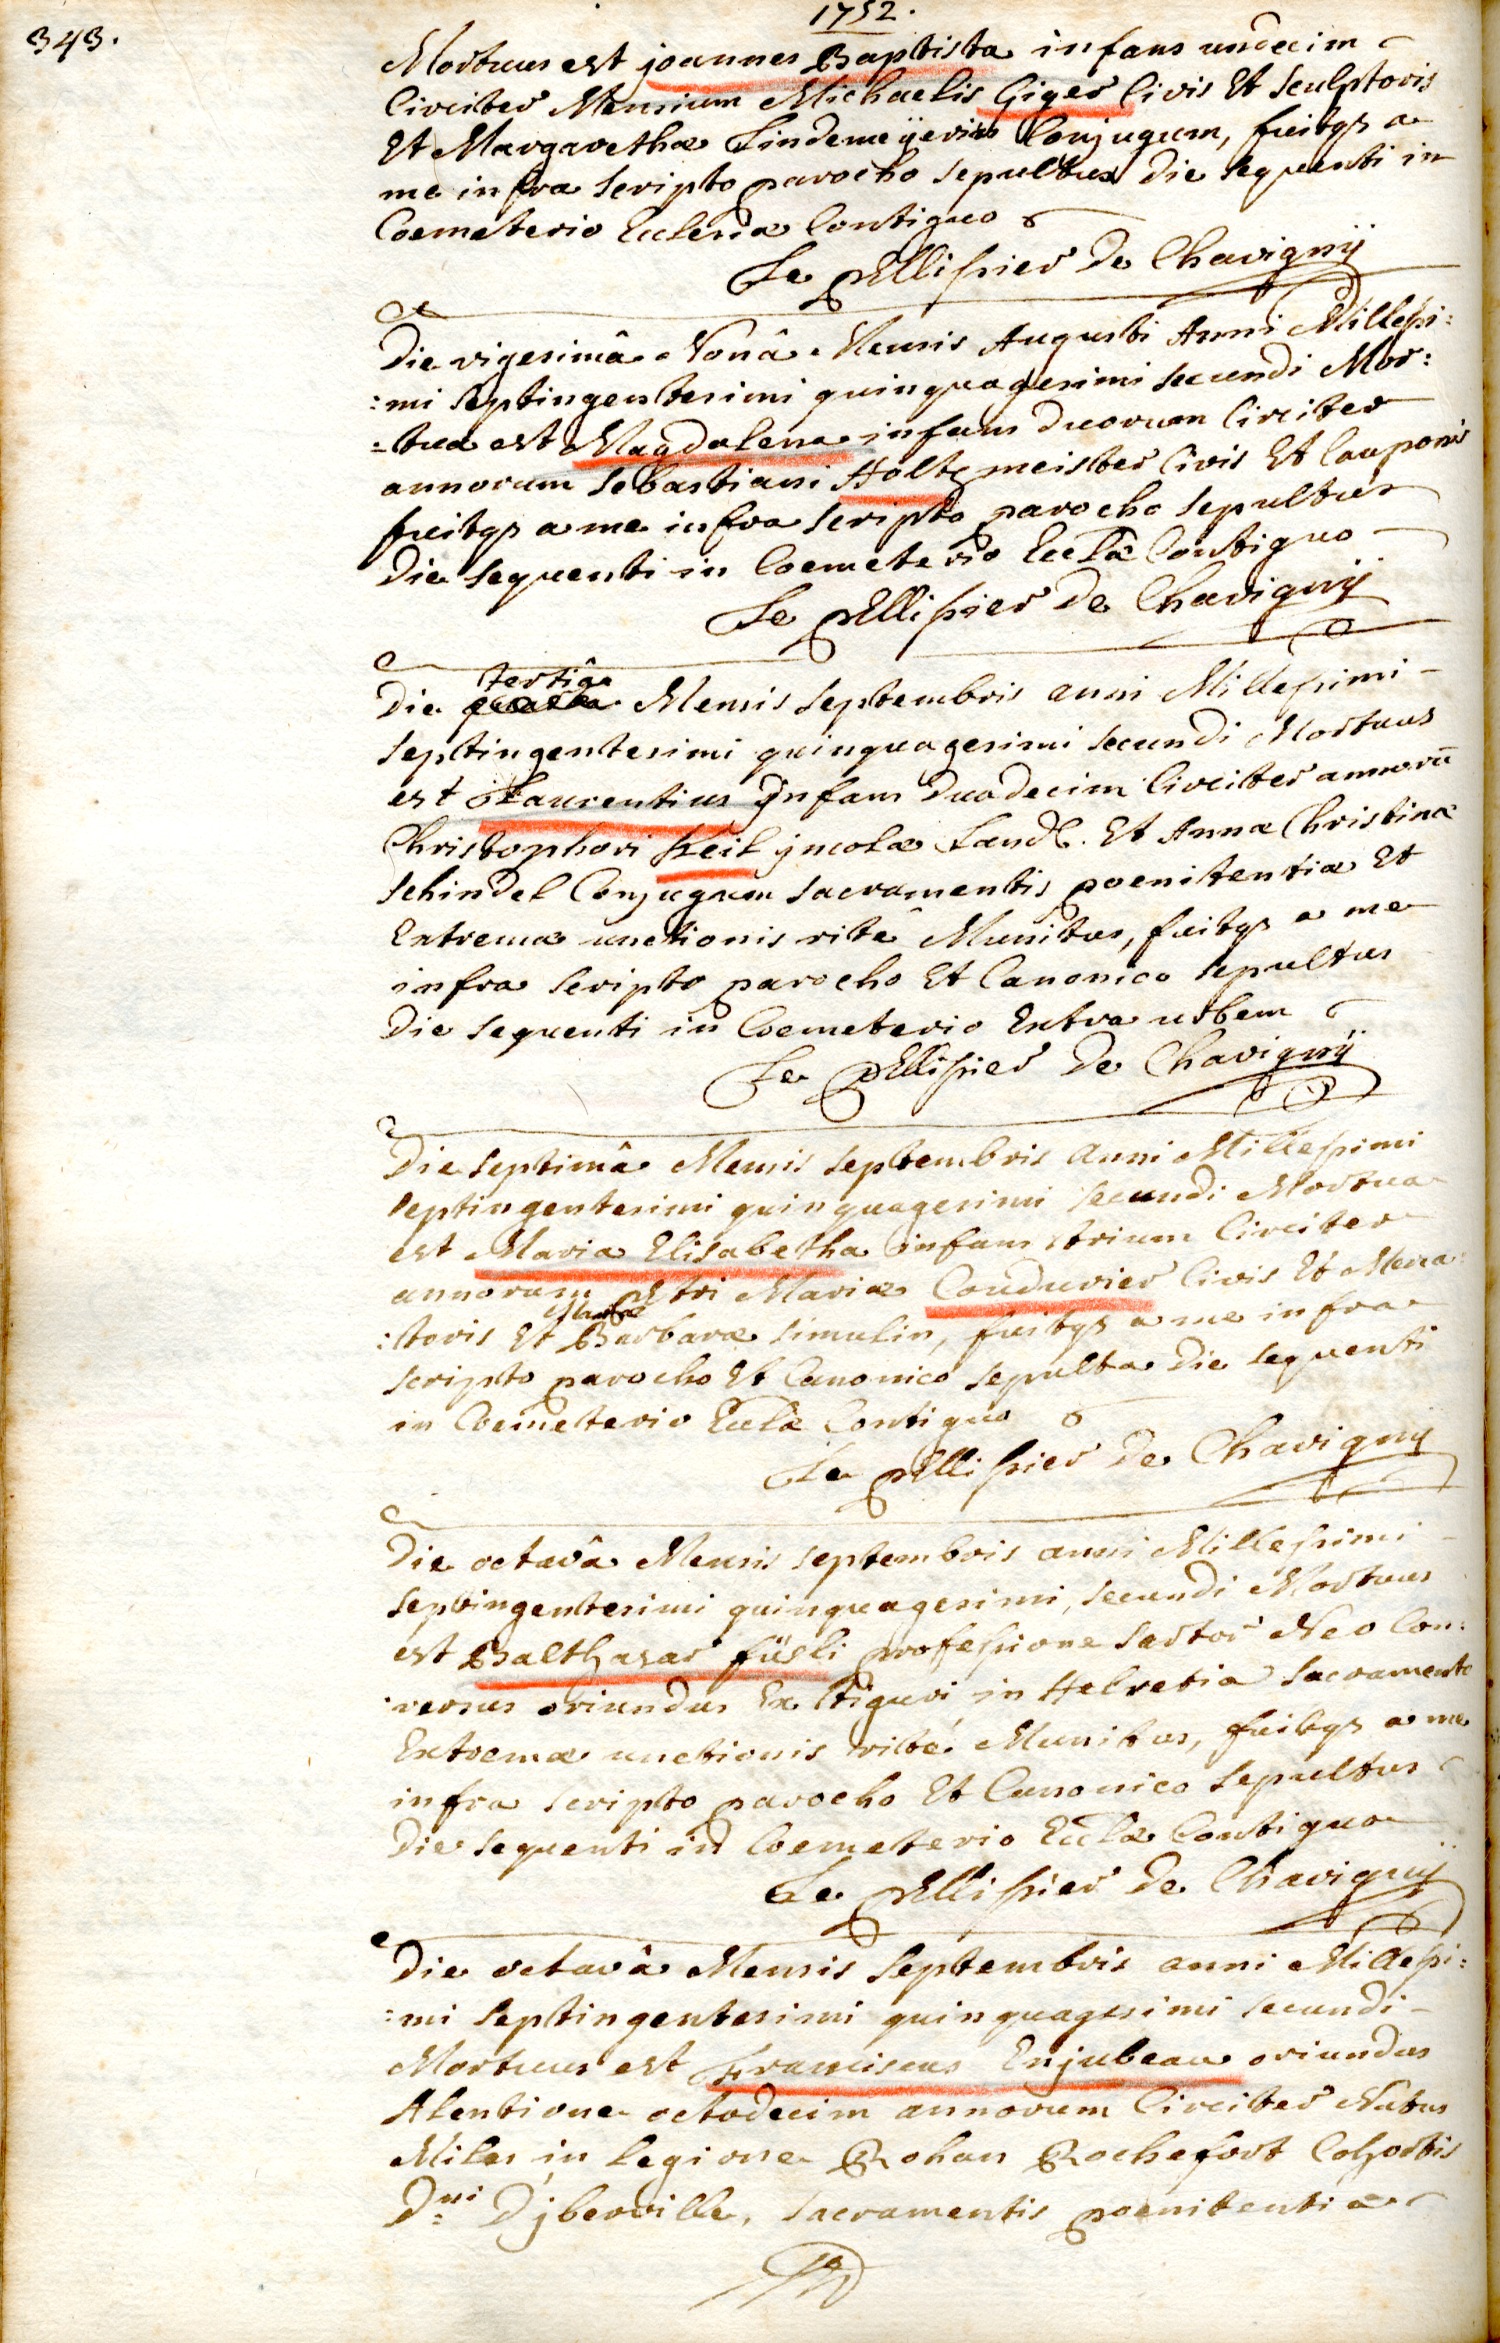 343.
1752.
Mortuus est joannes Baptista infans undecim
Circiter Mensium Michaelis Giger Civis Et Sculptoris
Et Margarethæ Lindemeÿerin Conjugum, fuitqs a
me infra scripto parocho sepultus die sequenti in
Coemeterio Ecclesiæ Contiguo
Le pellissier De Chavignÿ
Die vigesimâ Nonâ Mensis Augusti Anni Millessi:
:mi septingentesimi quinquagesimi secundi Mor:
:tua est Magdalena infans duorum Circiter
annorum sebastiani Holtzmeister Civis Et Cauponis
fuitqs a me infra scripto parocho sepultus
die sequenti in Coemeterio Ecclæ Contiguo
Le pellissier De Chavignÿ
tertiâ
Die Mensis septembris anni Millessimi
septingentesimi quinquagesimi secundi Mortuus
est Laurentius Infans duodecim Circiter annorū
Christophori Keil jncolæ Landl. Et Annæ Christinæ
Schindel Conjugum sacramentis poenitentiæ Et
Extremæ unctionis ritè Munitus, fuitqs a me
infra scripto parocho Et Canonico sepultus
Die sequenti in Coemeterio Extra urbem
Le pellissier De Chavignÿ
Die septimâ Mensis septembris Anni Millessimi
septingentesimi quinquagesimi secundi Mortua
est Maria Elisabetha infans trium Circiter
annorum petri Mariæ Couturier Civis Et Merca:
:toris Et Barbaræ simulin, fuitqs a me infra
scripto parocho Et Canonico sepulta die sequenti
in Coemeterio Ecclæ Contiguo
Le pellissier De Chavignÿ
Die octavâ Mensis septembris anni Millessimi
septingentesimi quinquagesimi, secundi Mortuus
est Balthasar füsli professione sartor Neo Con:
:versus oriundus Ex tiguri in Helvetia sacramento
Extremæ unctionis rité Munitus, fuitqs a me
infra scripto parocho Et Canonico sepultus
Die sequenti in Coemeterio Ecclæ Contiguo
Le pellissier De Chavignÿ
Die octavâ Mensis septembris anni Millessi:
:mi septingentesimi quinquagesimi secundi
Mortuus est franciscus Enjubeau oriundus
Alentione octodecim annorum Circiter Natus
Miles in legione Rohan Rochefort Cohortis
Dni Djberville, sacramentis poenitentiæ